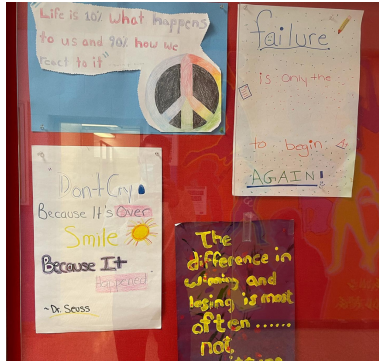 "Life is 10% what happens
to us and 90% how we
react to it"
failure
is only the
to begin
AGAIN!
Don't Cry
Because It's Over
Smile
Because It
Happened
~Dr. Seuss
The
difference in
winning and
losing is most
often ......
not